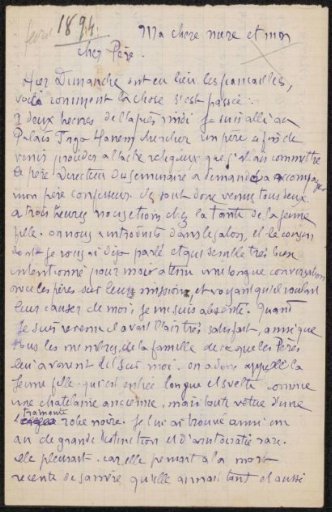 févr 1894
Ma chere mere et mon
cher Père.
Hier Dimanche, ont eu lieu les fiançailles,
voilà comment la chose s'est passée.
à deux heures de l'après midi je suis allé au
Palais chercher un père afin de
venir procéder à l'acte religieux que j'allais commettre
le père Directeur du seminaire a demandé a accompagner
mon père confesseur. Ils sont donc venus tous deux
a trois heures nous étions chez la tante de la jeune
fille. on nous a introduits dans le salon, et le cousin
dont je vous ai déjà parlé et qui semble très bien
intentionné pour moi a tenu une longue conversation
avec les pères sur leurs missions, et voyant qu'il voulait
leur causer de moi, je me suis absenté. Quand
je suis revenu il avait l'air très satisfait, ainsi que
tous les membres de la famille de ce que les Pères
lui avaient dit sur moi. on a donc appelé la
jeune fille qui est entrée longue et svelte comme
une chatelaine ancienne, mais toute vetue d'une
robe noire. Je lui ai trouvé ainsi un
air de grande distinction et d'aristocratie rare.
elle pleurait, car elle pensait à la mort
recente de sa mère qu'elle aimait tant et aussi